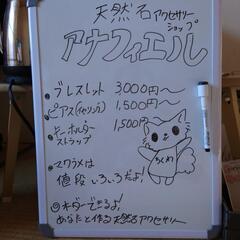 天然石アクセサリーショップ
アナフィエル
ブレスレット 3,000円〜
ピアス(イヤリング) 1,500円〜
キーホルダー 1,500円
ストラップ
マクラメは
値段いろいろだよ!
◎オーダーできるよ!
あなたと作る天然石アクセサリー
ちくわ